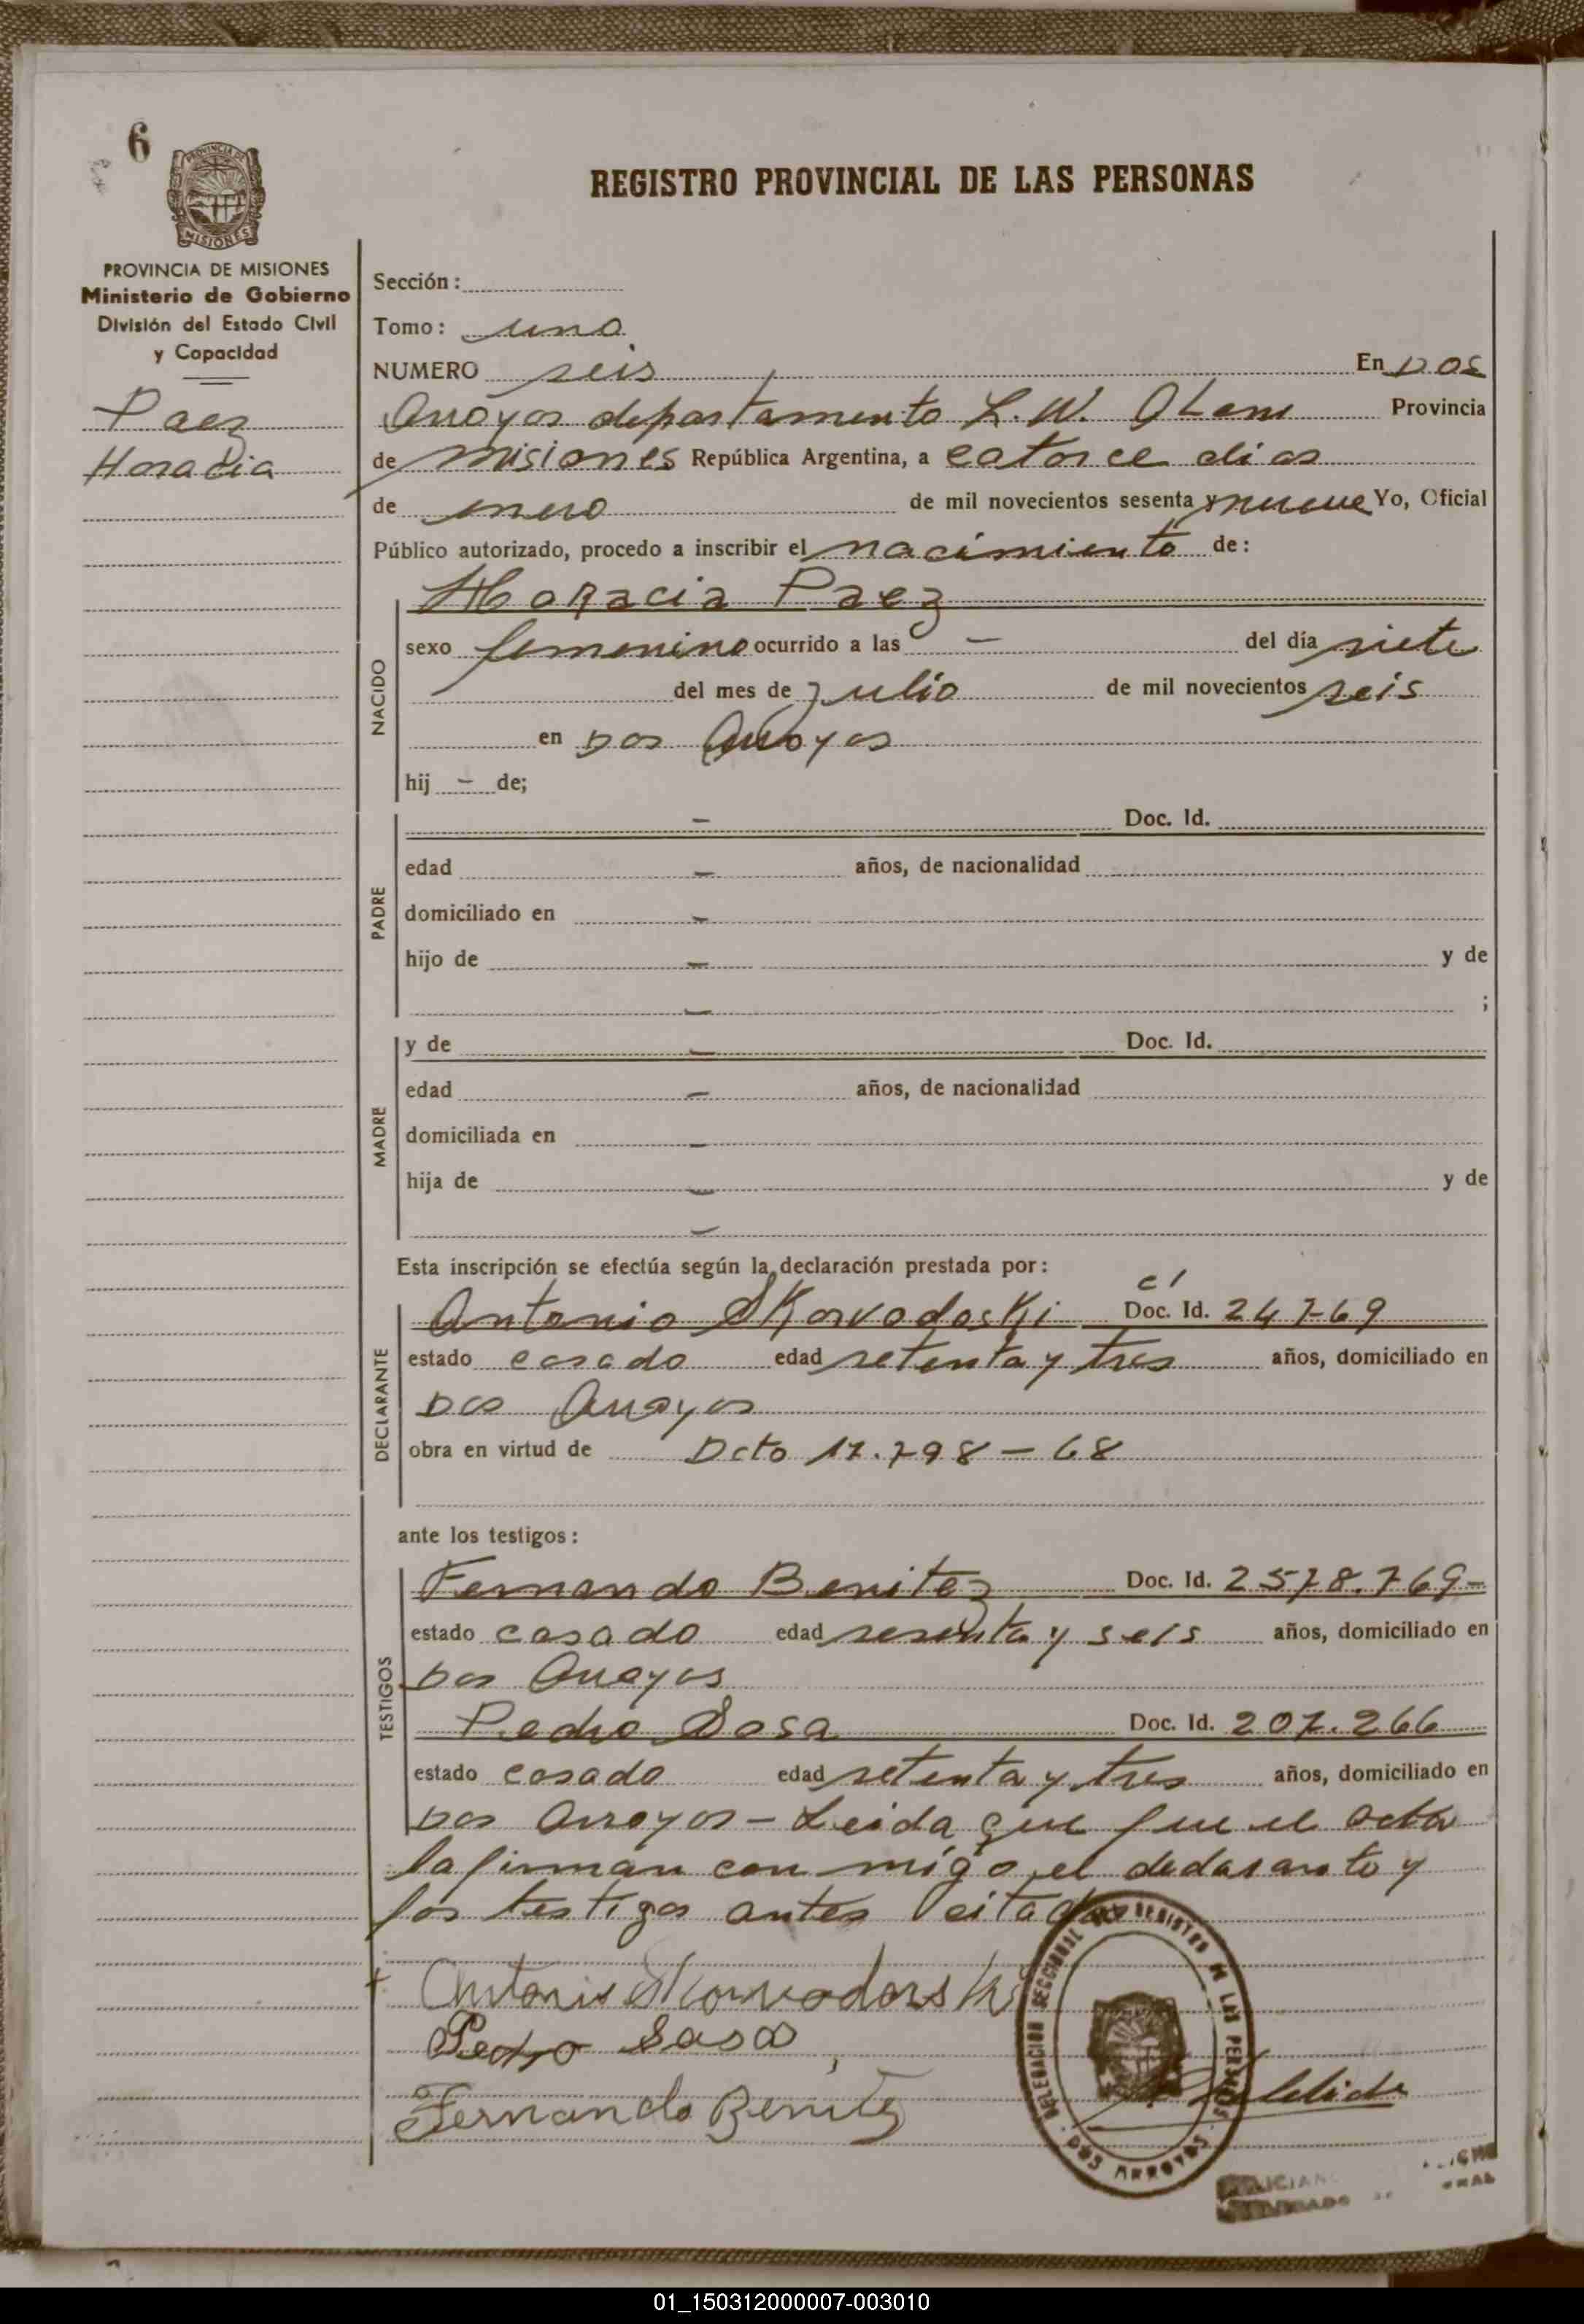 6
PROVINCIA DE
MISIONES
REGISTRO PROVINCIAL DE LAS PERSONAS
PROVINCIA DE MISIONES
Ministerio de Gobierno
División del Estado Civil
y Capacidad
Paez
Horacia
Sección:
Tomo: uno
NUMERO seis En Dos
Arroyos departamento L. N. Alem Provincia
de Misiones República Argentina, a catorce dias
de enero de mil novecientos sesenta y nueve Yo, Oficial
Público autorizado, procedo a inscribir el nacimiento de:
Horacia Paez
NACIDO
sexo femenino ocurrido a las - del día siete
del mes de Julio de mil novecientos seis
en Dos Arroyos
hij - de;
PADRE
- Doc. Id.
edad - años, de nacionalidad
domiciliado en -
hijo de - y de
- ;
MADRE
y de - Doc. Id.
edad - años, de nacionalidad
domiciliada en -
hija de - y de
-
Esta inscripción se efectúa según la declaración prestada por:
DECLARANTE
Antonio SKorvodosKi CI Doc. Id. 247-69
estado casado edad setenta y tres años, domiciliado en
Dos Arroyos
obra en virtud de Dcto 17.798-68
ante los testigos:
TESTIGOS
Fernando Benitez Doc. Id. 2578.769-
estado casado edad sesenta y seis años, domiciliado en
Dos Arroyos
Pedro Sosa Doc. Id. 207.266
estado casado edad setenta y tres años, domiciliado en
Dos Arroyos - Leida que fue el acta
la firman con migo el declarante y
los testigos antes citados
Antonio Skorvodorski
Pedro Sasa
Fernando Benitez
DELEGACION SECCIONAL DEL REGISTRO DE LAS PERSONAS
DOS ARROYOS
01_150312000007-003010